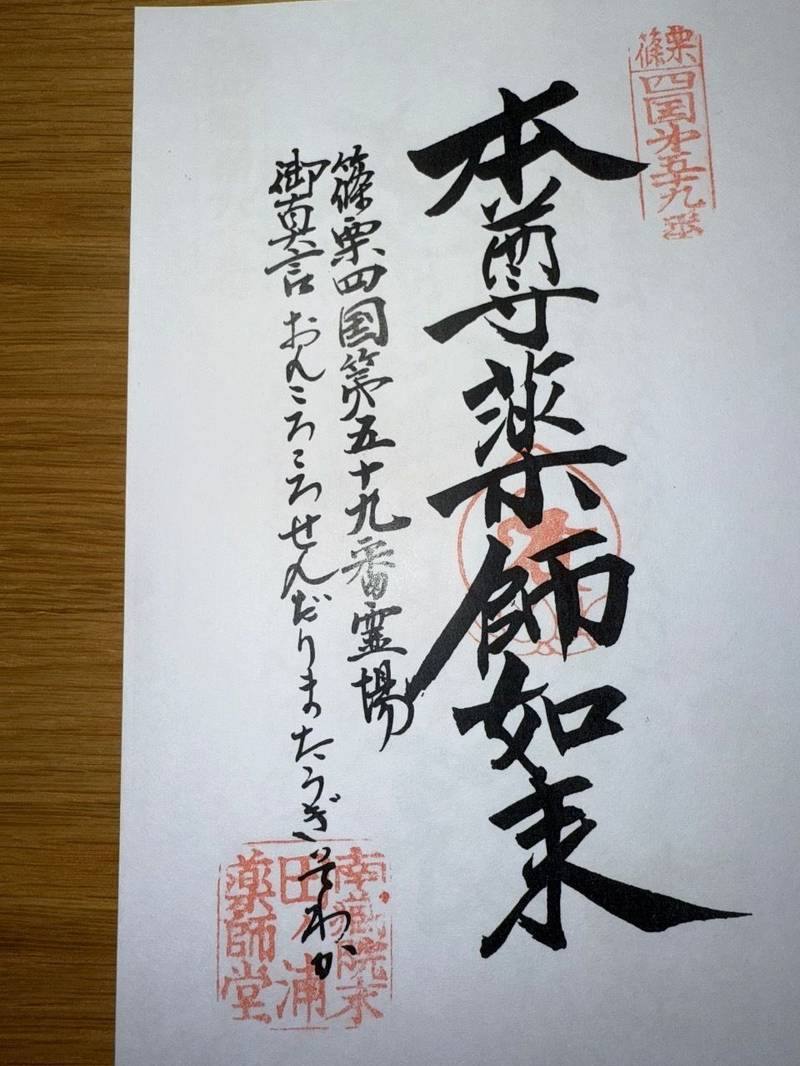 篠栗
四国第五十九番
本尊薬師如来
篠栗四国第五十九番霊場
御真言 おんころころせんだりまたうぎそわか
南蔵院末
田ノ浦
薬師堂